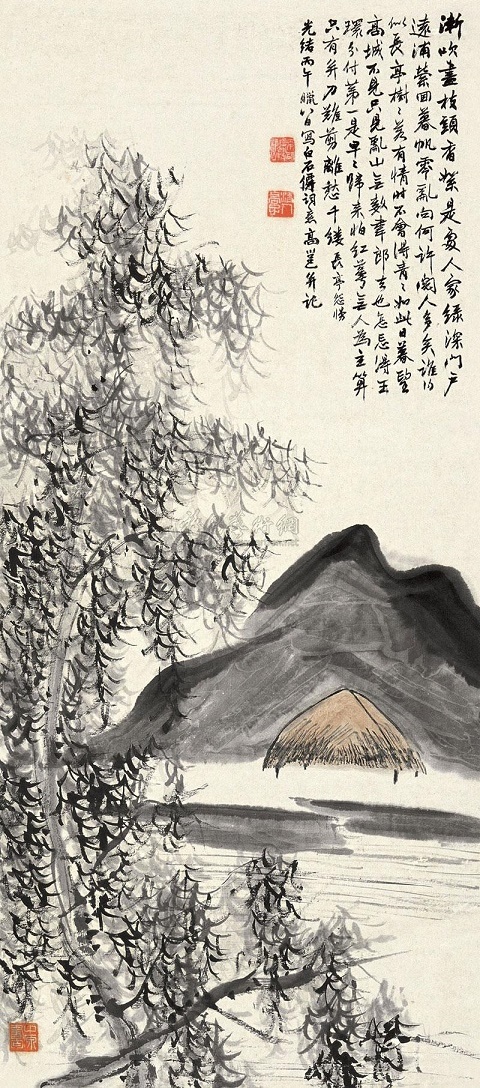 漸吹盡枝頭香絮是處人家綠深門戶
遠浦縈回暮帆零亂向何許閱人多矣誰得
似長亭樹〻若有情時不會得青〻如此日暮望
高城不見只見亂山無數韋郎去也怎忘得玉
環分付第一是早〻歸來怕紅萼無人為主算
只有并刀難剪離愁千縷 長亭怨慢
光緒丙午臘八日寫白石僊詞意高邕并記